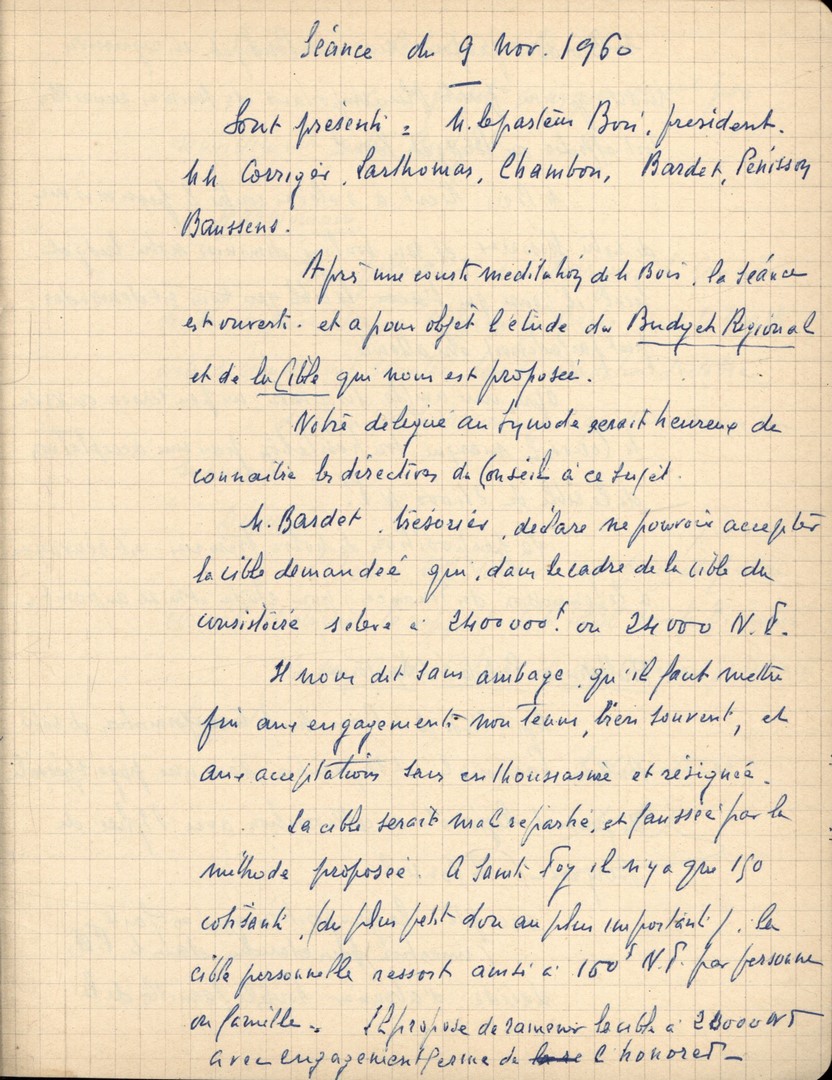 Séance du 9 Nov. 1960
Sont présents = M. le pasteur Bois, président.
MM Corriger, Larthomas, Chambon, Bardet, Pénisson
Baussens.
Après une courte méditation de M Bois, la séance
est ouverte. et a pour objet l'étude du Budget Régional
et de la Cible qui nous est proposée.
Notre délégué au Synode serait heureux de
connaitre les directives du Conseil à ce sujet.
M. Bardet, trésorier, déclare ne pouvoir accepter
la cible demandée qui, dans le cadre de la cible du
consistoire s'élève à 2400000f. ou 24000 N.F.
Il nous dit sans ambage, qu'il faut mettre
fin aux engagements non tenus, bien souvent, et
aux acceptations sans enthousiasme et résignée.
La cible serait mal repartie, et faussée par la
méthode proposée. A Sainte Foy il n'y a que 150
cotisants, (du plus petit don au plus important). La
cible personnelle ressort ainsi à 160f N.F. par personne
ou famille. Il propose de ramener la cible à 2 000 NF
avec engagement ferme de l'honorer—